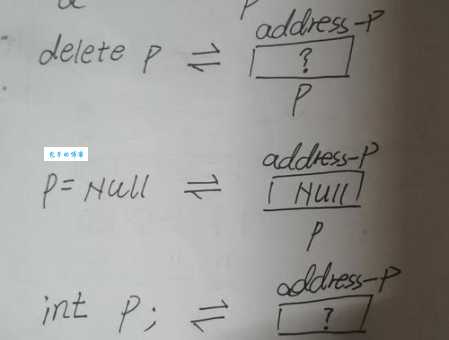 address-P
delete P ⇌ ?
P
address-P
P = NULL ⇌ NULL
P
address-P
int P; ⇌ ?